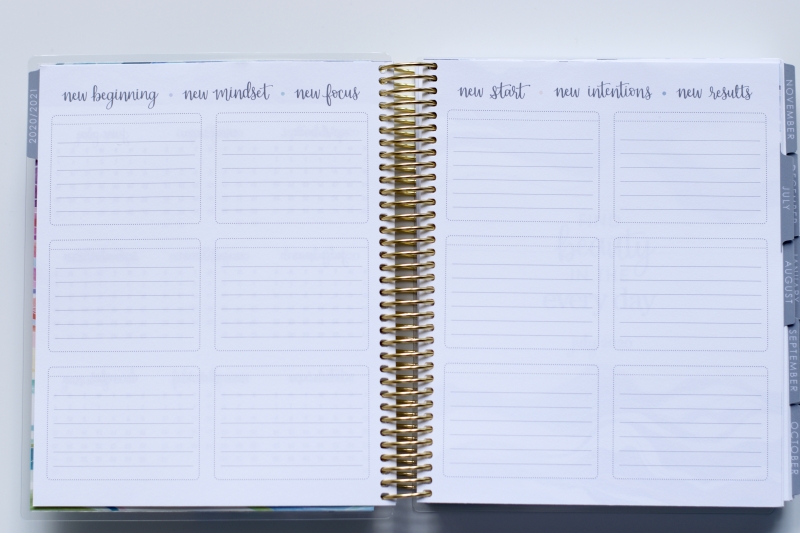 2020/2021
new beginning • new mindset • new focus
new start • new intentions • new results
NOVEMBER
JULY
AUGUST
SEPTEMBER
OCTOBER
beauty
everyday